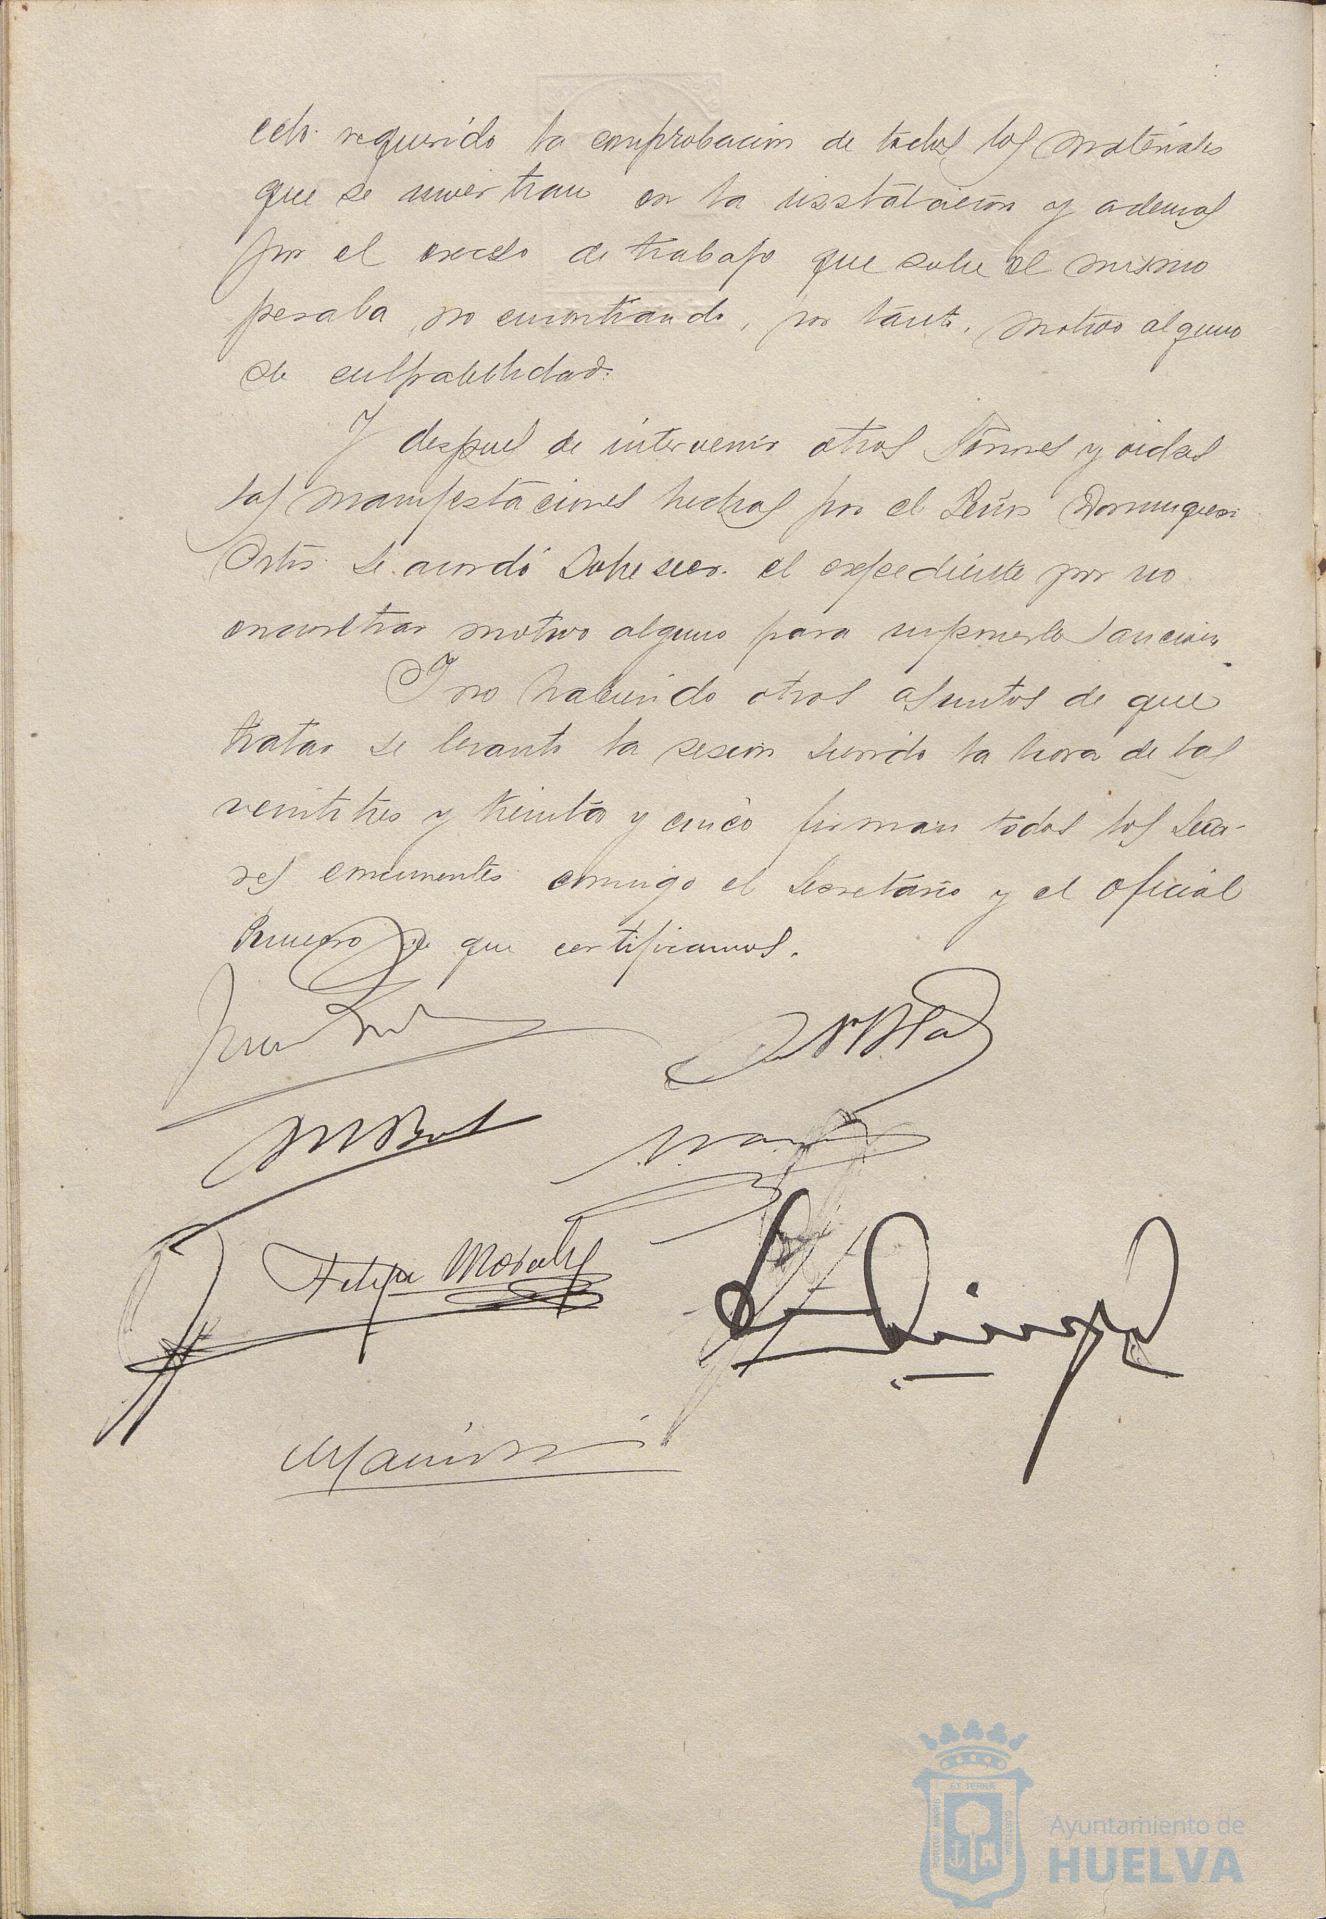 celo requerido la comprobacion de todos los materiales
que se invertian en la instalacion y ademas
por el exceso de trabajo que sobre el mismo
pesaba, no encontrando, por tanto, motivo alguno
de culpabilidad.
Y despues de intervenir otros Sres y oidas
las manifestaciones hechas por el Señor Dominguez
Ortiz se acordó sobreseer el expediente por no
encontrar motivo alguno para imponerle sancion.
Y no habiendo otros asuntos de que
tratar se levanto la sesion siendo la hora de las
veintitres y treinta y cinco firman todos los Seño-
res concurrentes conmigo el Secretario y el oficial
Primero de que certificamos.
Felipe Morales
ET TERRAE
CUSTODIA
PORTUS MARIS
Ayuntamiento de
HUELVA